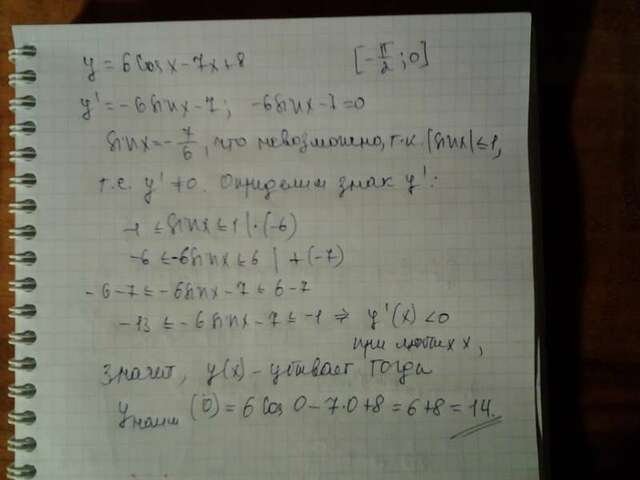 y = 6cosx - 7x + 8 [-π/2; 0]
y' = -6sinx - 7; -6sinx - 7 = 0
sinx = -7/6, что невозможно, т.к. |sinx| ≤ 1,
т.е. y' ≠ 0. Определим знак y':
-1 ≤ sinx ≤ 1 | ·(-6)
-6 ≤ -6sinx ≤ 6 | +(-7)
-6-7 ≤ -6sinx - 7 ≤ 6-7
-13 ≤ -6sinx - 7 ≤ -1 ⇒ y'(x) < 0
при любых x,
значит, y(x) - убывает. Тогда
y наим (0) = 6cos0 - 7·0 + 8 = 6+8 = 14.